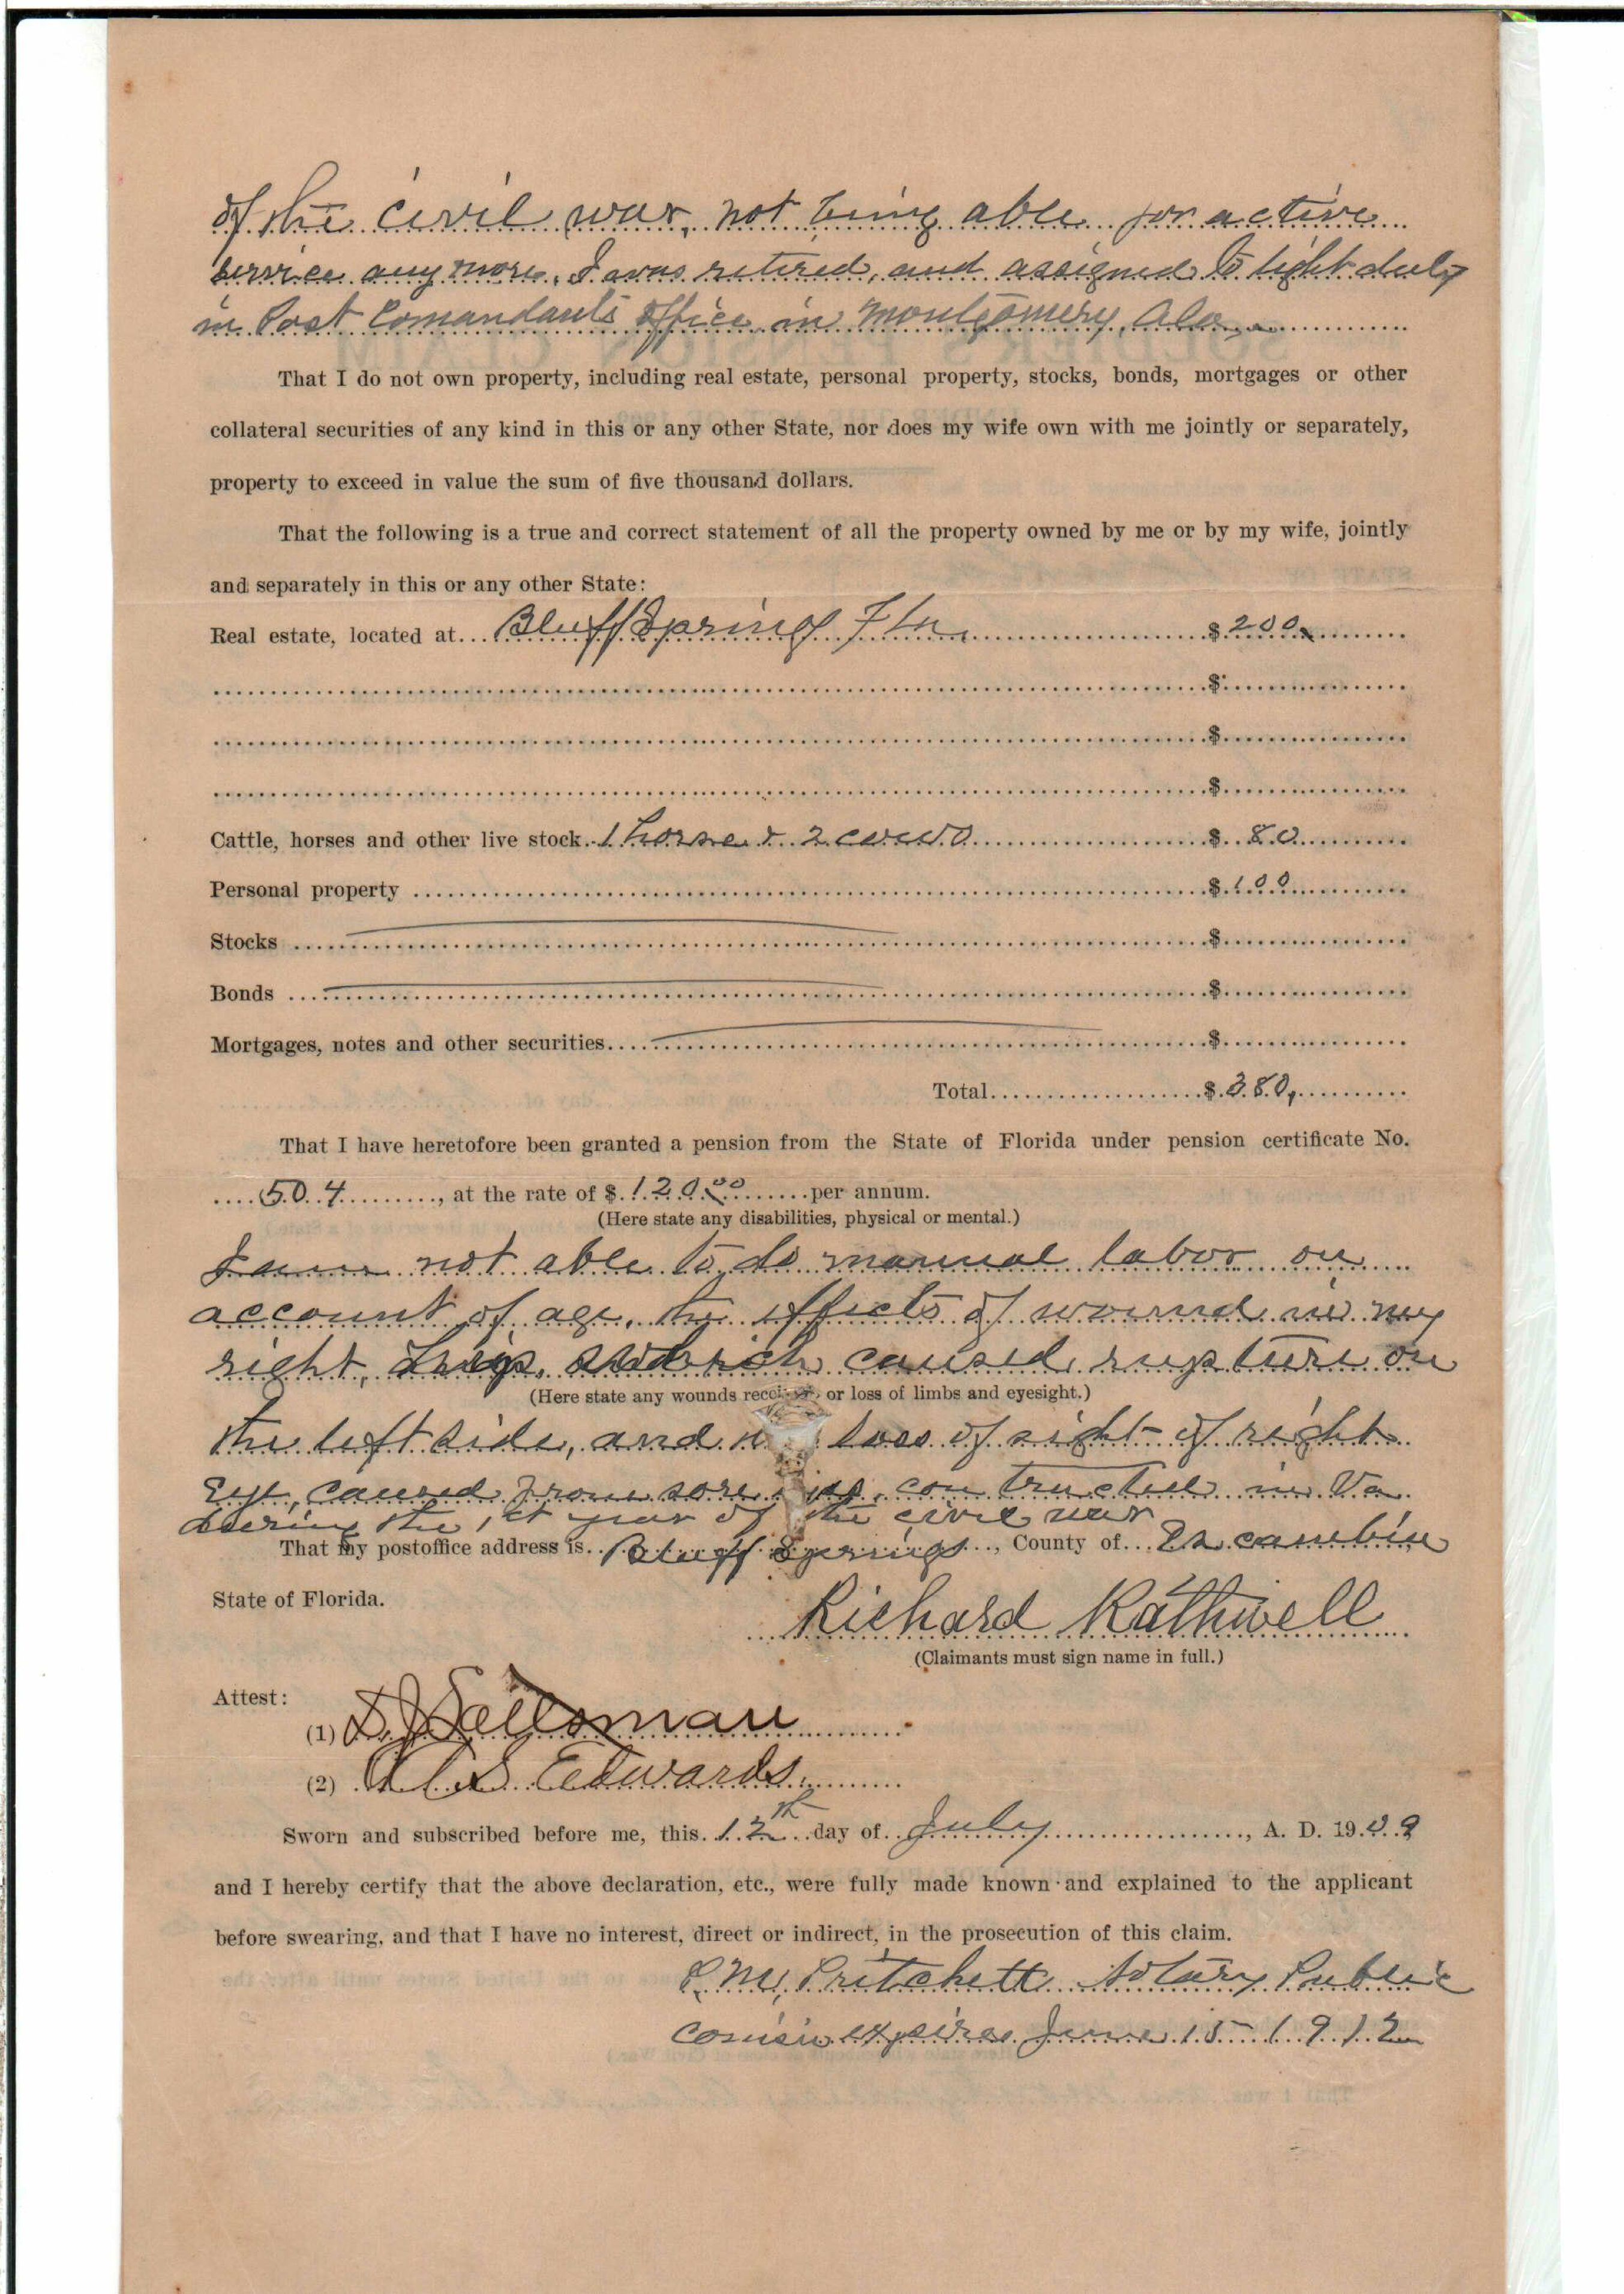 of the civil war, not being able for active
service any more, I was retired, and assigned to light duty
in Post Comandants office in Montgomery, Ala,
That I do not own property, including real estate, personal property, stocks, bonds, mortgages or other
collateral securities of any kind in this or any other State, nor does my wife own with me jointly or separately,
property to exceed in value the sum of five thousand dollars.
That the following is a true and correct statement of all the property owned by me or by my wife, jointly
and separately in this or any other State:
Real estate, located at... Bluff Springs Fla, $ 200.
$
$
$
Cattle, horses and other live stock. 1 horse & 2 cows $ 80
Personal property $ 100
Stocks $
Bonds $
Mortgages, notes and other securities $
Total $ 380,
That I have heretofore been granted a pension from the State of Florida under pension certificate No.
504, at the rate of $ 120.00 per annum.
(Here state any disabilities, physical or mental.)
I am not able to do manual labor on
account of age, the effects of wound in my
right, which caused rupture on
(Here state any wounds or loss of limbs and eyesight.)
the left side, and loss of sight of right
Eye, caused from sore contracted in Va
during the 1st year of the civil war
That my postoffice address is Bluff Springs, County of Escambia
State of Florida.
Richard Rathwell
(Claimants must sign name in full.)
Attest:
(1)
(2) Edwards
Sworn and subscribed before me, this 12th day of July, A. D. 1909
and I hereby certify that the above declaration, etc., were fully made known and explained to the applicant
before swearing, and that I have no interest, direct or indirect, in the prosecution of this claim.
Pritchett Notary Public
expires June 15 1912